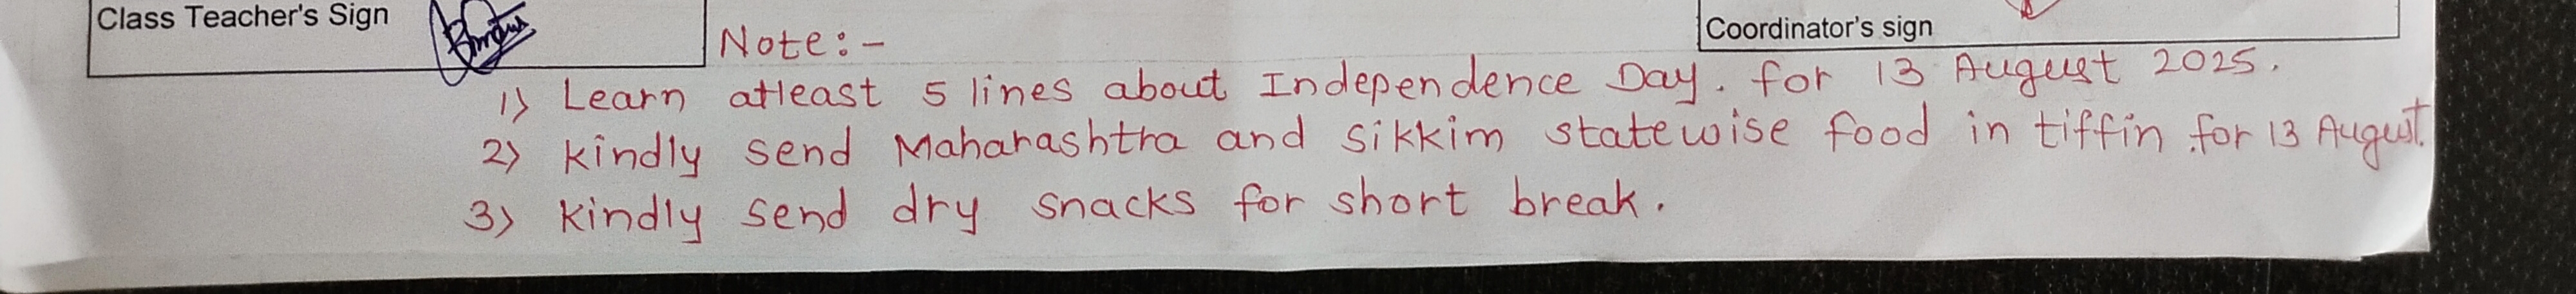 Class Teacher's Sign
Coordinator's sign
Note:-
1) Learn atleast 5 lines about Independence Day. for 13 August 2025.
2) kindly send Maharashtra and Sikkim statewise food in tiffin for 13 August.
3) kindly send dry snacks for short break.